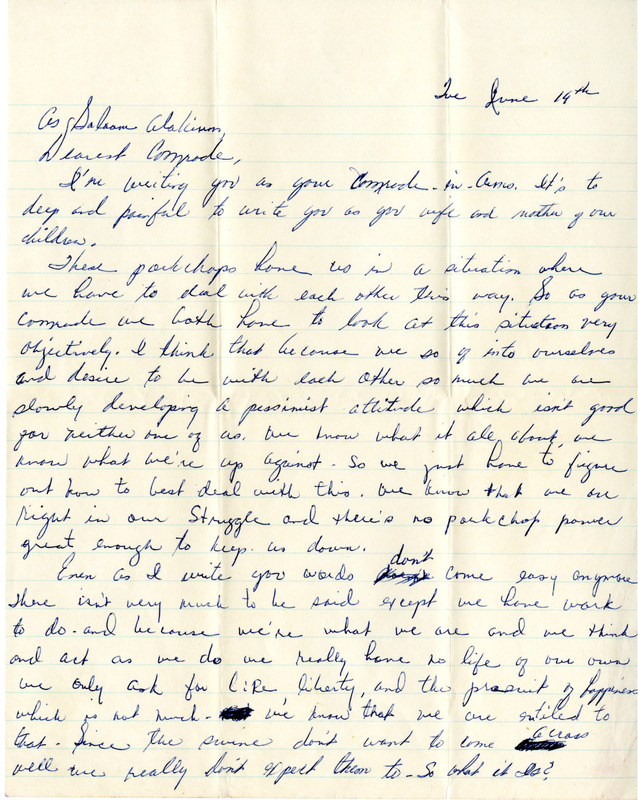 Tue June 19th
As, Salaam Alakium,
Dearest Comrade,
I'm writing you as your Comrade-in-Arms. It's to
deep and painful to write you as you wife and mother of our
children.
These porkchops have us in a situation where
we have to deal with each other this way. So as your
comrade we both have to look at this situation very
objectively. I think that because we so of into ourselves
and desire to be with each other so much we are
slowly developing a pessimist attitude which isn't good
for neither one of us. We know what it all about, we
know what we're up against. So we just have to figure
out how to best deal with this. We know that we are
right in our Struggle and there's no porkchop power
great enough to keep us down.
Even as I write you words don't come easy anymore
there isn't very much to be said except we have work
to do. and because we're what we are and we think
and act as we do we really have no life of our own
we only ask for life liberty, and the prosuit of happiness
which is not much. we know that we are entiled to
that. Since the swine don't want to come across
well we really don't expect them to. So what it is?